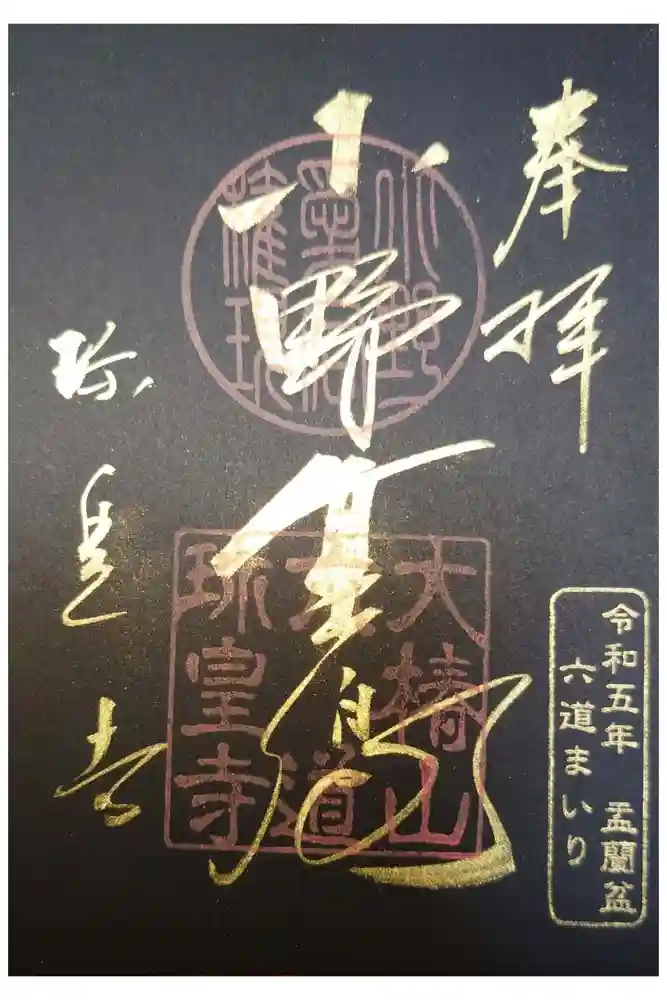 奉拝
小野篁卿
珍皇寺
大椿山
六道
珍皇寺
令和五年 盂蘭盆
六道まいり